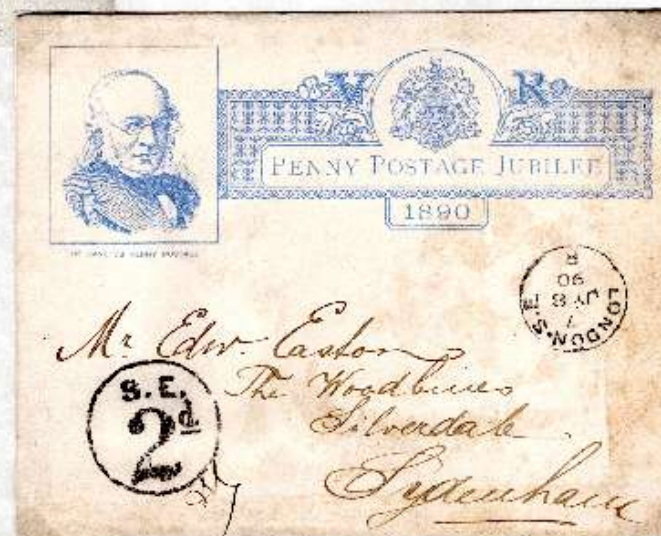 V R
PENNY POSTAGE JUBILEE
1890
PENNY POSTAGE
LONDON·S.E
7
JY 8
90
R
Mr Edw. Easton
The Woodbines
Silverdale
Sydenham
S.E.
2d